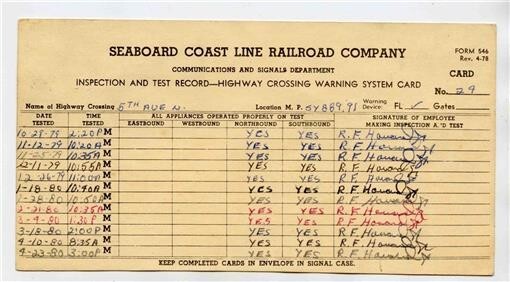 SEABOARD COAST LINE RAILROAD COMPANY
FORM 546
Rev. 4-78
COMMUNICATIONS AND SIGNALS DEPARTMENT
CARD
INSPECTION AND TEST RECORD—HIGHWAY CROSSING WARNING SYSTEM CARD
No. 29
Name of Highway Crossing 5TH AVE N. Location M. P. SY889.91 Warning Device: FL ✓ Gates
DATE TESTED TIME TESTED ALL APPLIANCES OPERATED PROPERLY ON TEST SIGNATURE OF EMPLOYEE MAKING INSPECTION AND TEST
EASTBOUND WESTBOUND NORTHBOUND SOUTHBOUND
10-29-79 2:20P M YES YES R.F. Howard
11-12-79 10:20A M YES YES R.F. Howard
11-25-79 10:35A M YES YES R.F. Howard
12-11-79 10:55A M YES YES R.F. Howard
12-26-79 11:00A M YES YES R.F. Howard
1-18-80 10:40A M YES YES R.F. Howard
1-28-80 10:50A M YES YES R.F. Howard
2-21-80 10:35A M YES YES R.F. Howard
3-4-80 1:30P M YES YES R.F. Howard
3-18-80 2:00P M YES YES R.F. Howard
4-10-80 8:35A M YES YES R.F. Howard
4-23-80 3:00P M YES YES R.F. Howard
KEEP COMPLETED CARDS IN ENVELOPE IN SIGNAL CASE.